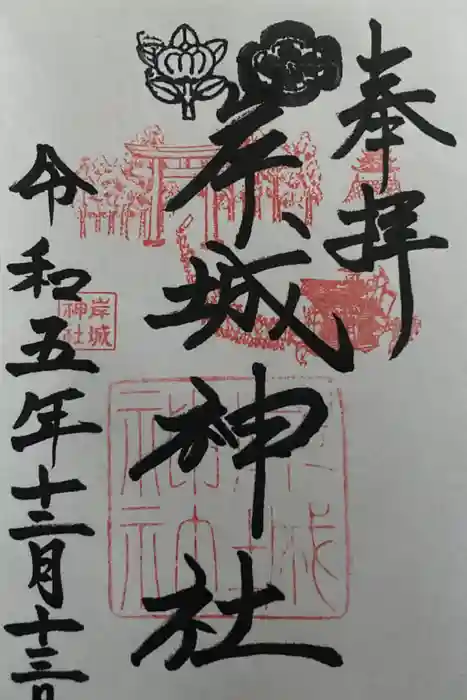 奉拝
岸城神社
岸城
神社
令和五年十二月十三日